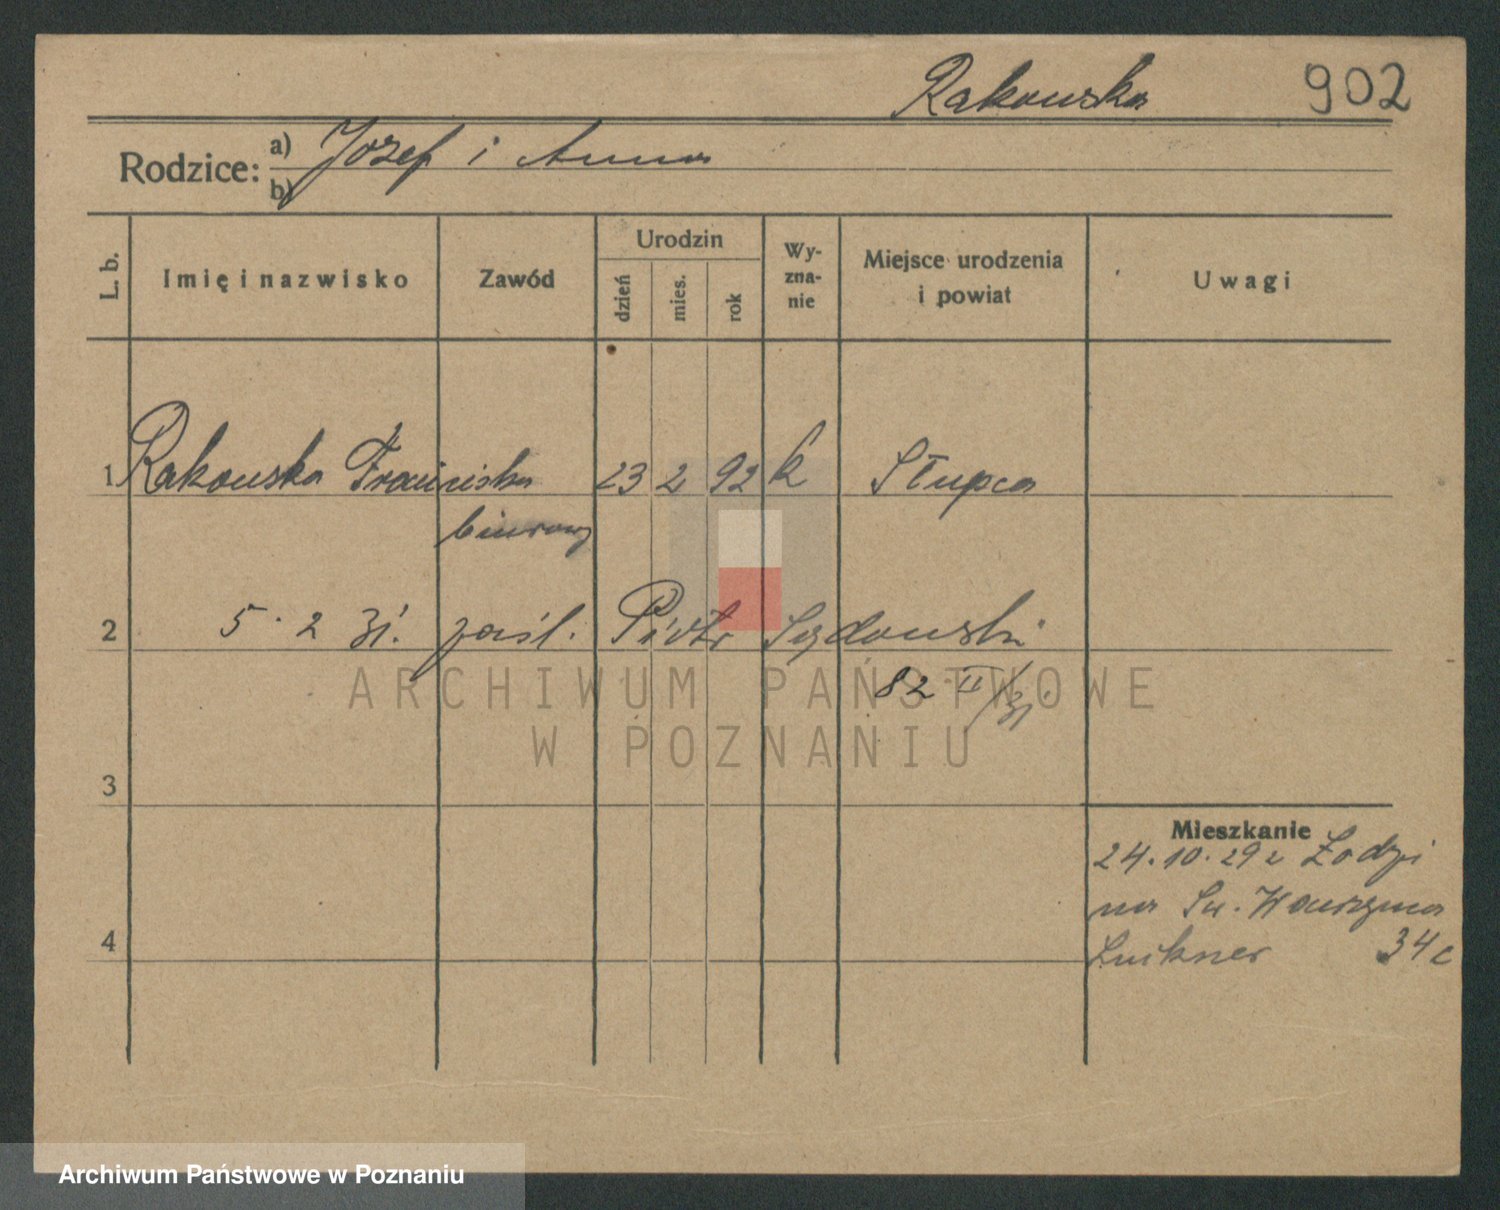 Rakowska 902
Rodzice: a) Józef i Anna
b)
L. b. Imię i nazwisko Zawód Urodzin dzień mies. rok Wy-zna-nie Miejsce urodzenia i powiat Uwagi
1 Rakowska Franciszka 23 2 92 k Słupca
biurowy
2 5. 2 31. zaśl. Piotr
82 II/31
ARCHIWUM PAŃSTWOWE
W POZNANIU
3
Mieszkanie
24.10.29 z Łodzi
na Św. Wawrzyńca
4 34c
Archiwum Państwowe w Poznaniu